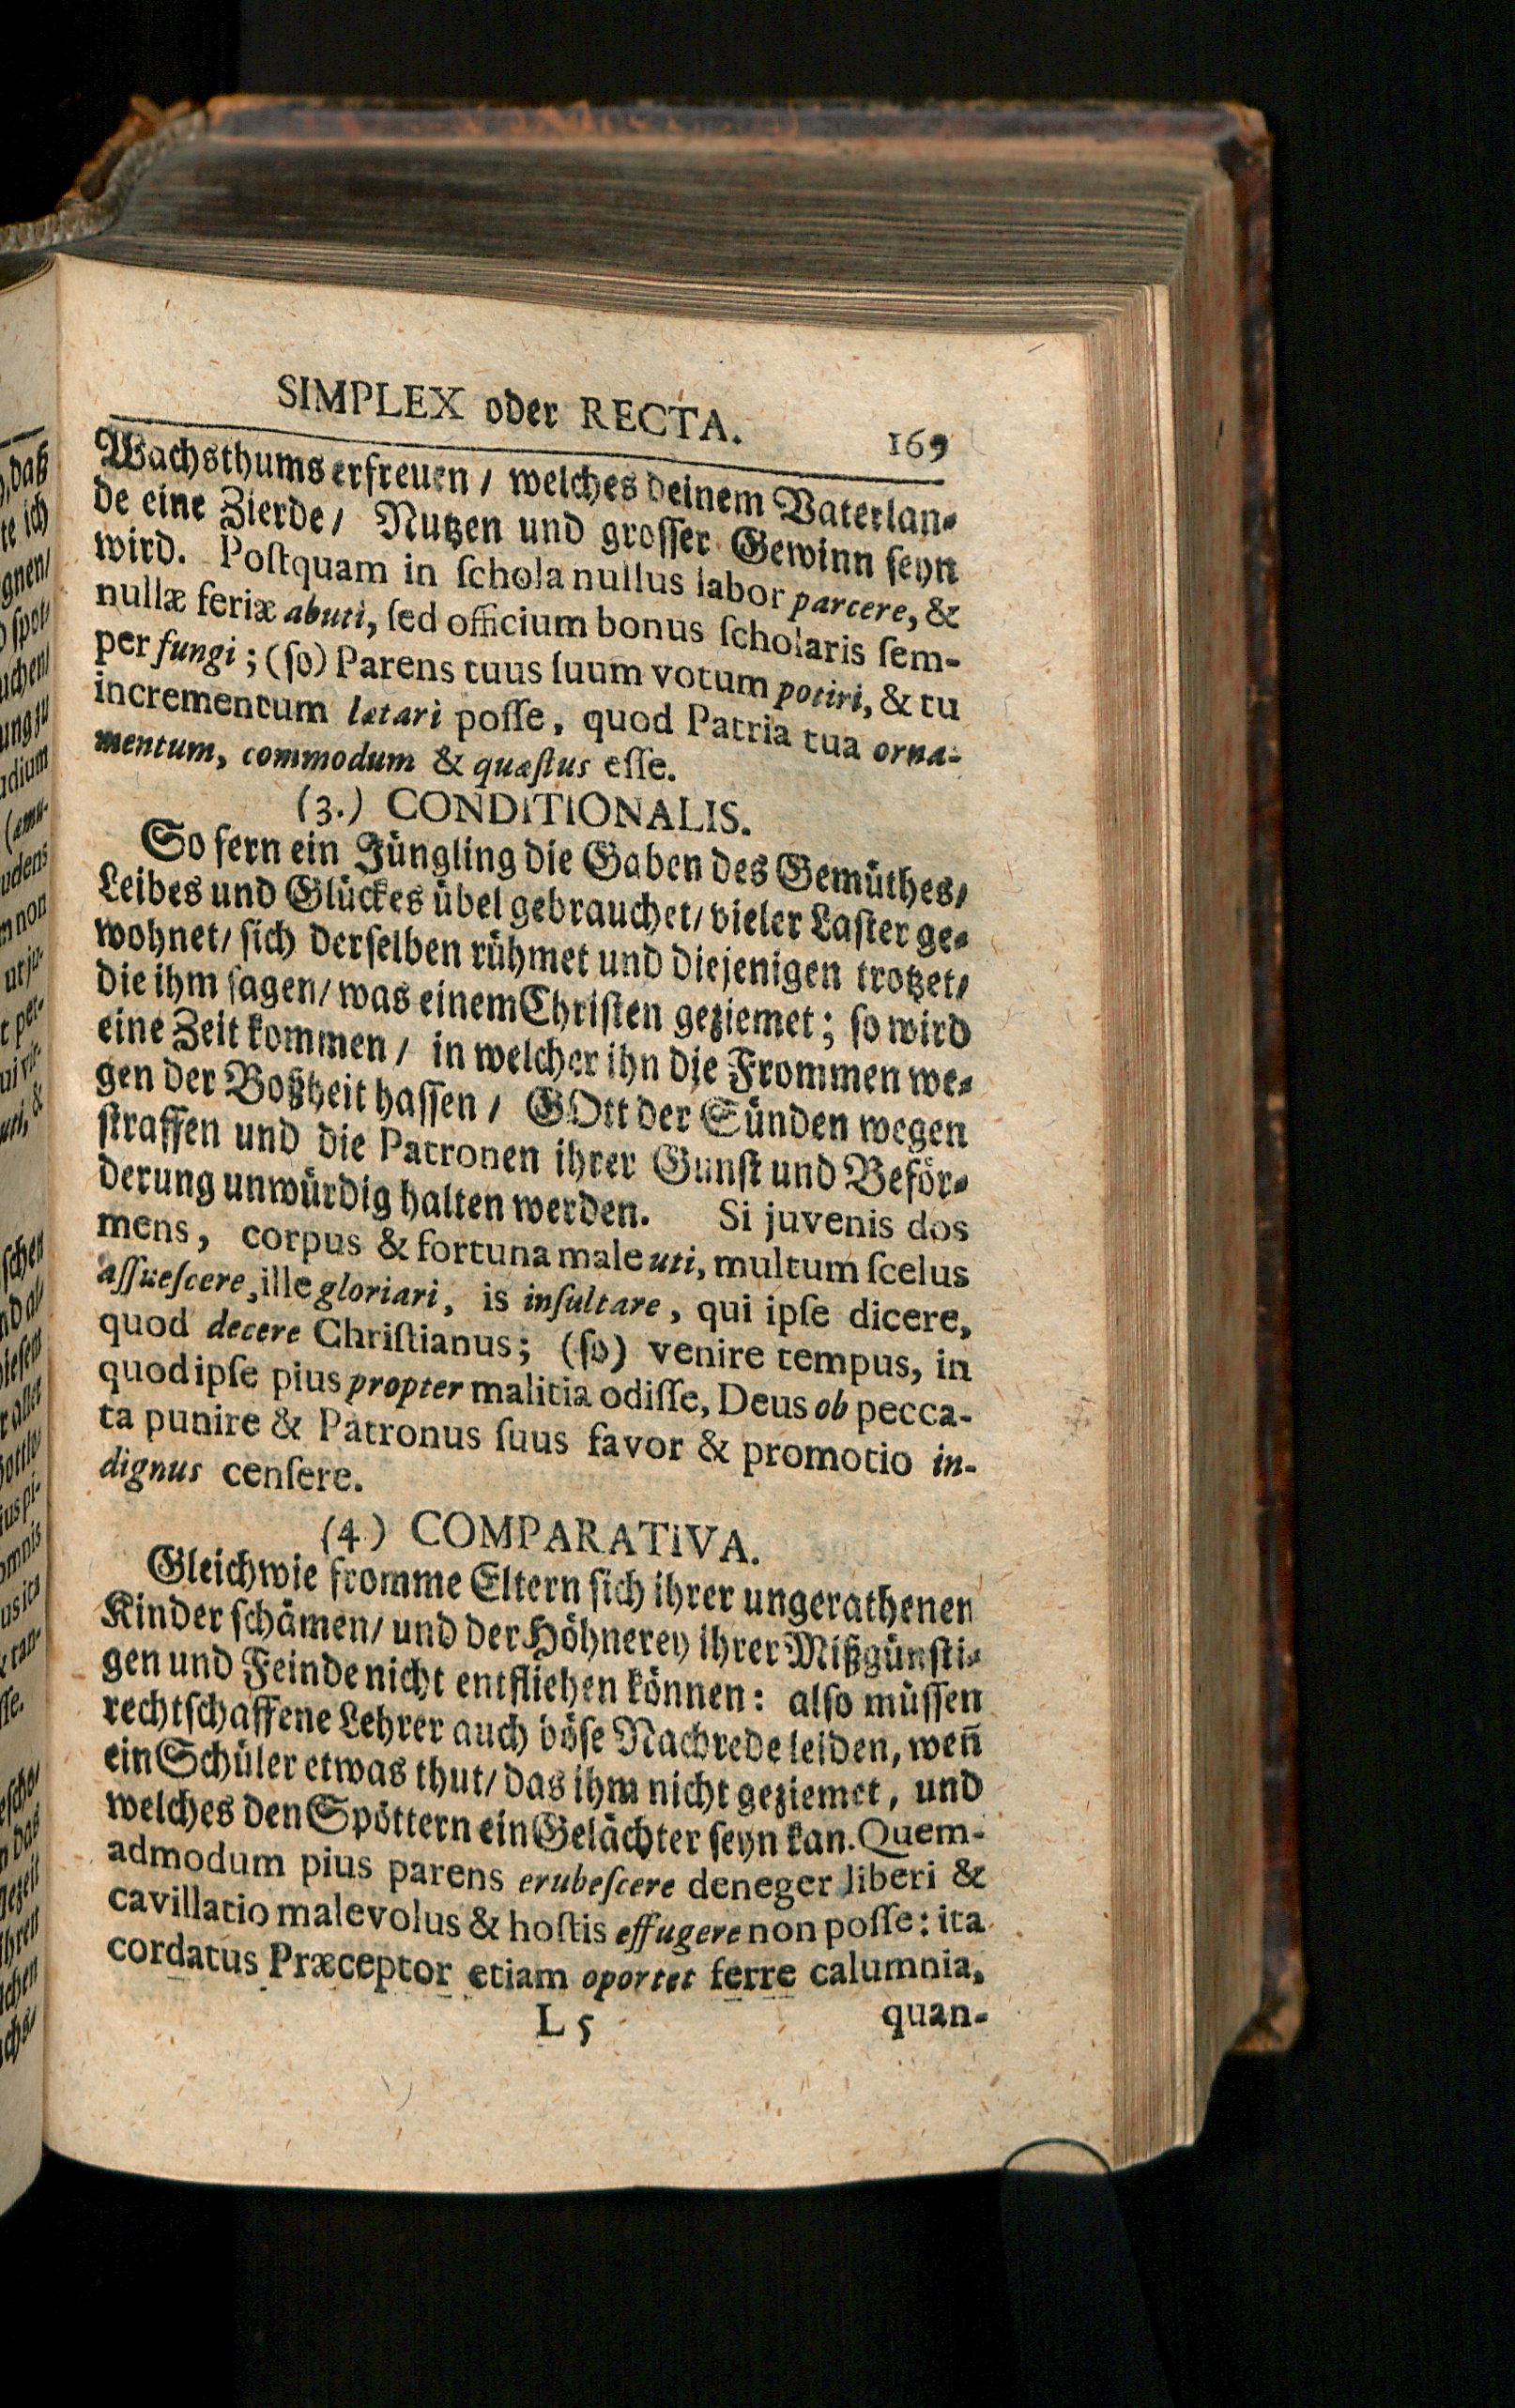 SIMPLEX oder RECTA. 169
Wachsthums erfreuen / welches deinem Vaterlan⸗
de eine Zierde / Nutzen und grosser Gewinn seyn
wird. Poſtquam in ſchola nullus labor parcere, &
nullæ feriæ abuti, ſed officium bonus ſcholaris ſem-
per fungi; (ſo) Parens tuus ſuum votum potiri, & tu
incrementum lætari poſſe, quod Patria tua orna-
mentum, commodum & quæſtus eſſe.
(3.) CONDITIONALIS.
So fern ein Jüngling die Gaben des Gemüthes/
Leibes und Glückes übel gebrauchet/ vieler Laſter ge⸗
wohnet/ ſich derſelben rühmet und diejenigen trotzet/
die ihm ſagen/ was einem Chriſten geziemet; ſo wird
eine Zeit kommen / in welcher ihn die Frommen we⸗
gen der Boßheit haſſen / GOtt der Sünden wegen
ſtraffen und die Patronen ihrer Gunſt und Beför⸗
derung unwürdig halten werden. Si juvenis dos
mens, corpus & fortuna male uti, multum ſcelus
aſſueſcere, ille gloriari, is inſultare, qui ipſe dicere,
quod decere Chriſtianus; (ſo) venire tempus, in
quod ipſe pius propter malitia odiſſe, Deus ob pecca-
ta punire & Patronus ſuus favor & promotio in-
dignus cenſere.
(4.) COMPARATIVA.
Gleichwie fromme Eltern ſich ihrer ungerathenen
Kinder ſchämen/ und der Höhnerey ihrer Mißgünſti⸗
gen und Feinde nicht entfliehen können: alſo müſſen
rechtſchaffene Lehrer auch böſe Nachrede leiden, weñ
ein Schüler etwas thut/ das ihm nicht geziemet, und
welches den Spöttern ein Gelächter ſeyn kan. Quem-
admodum pius parens erubeſcere deneger liberi &
cavillatio malevolus & hoſtis effugere non poſſe: ita
cordatus Præceptor etiam oportet ferre calumnia,
L 5 quan-